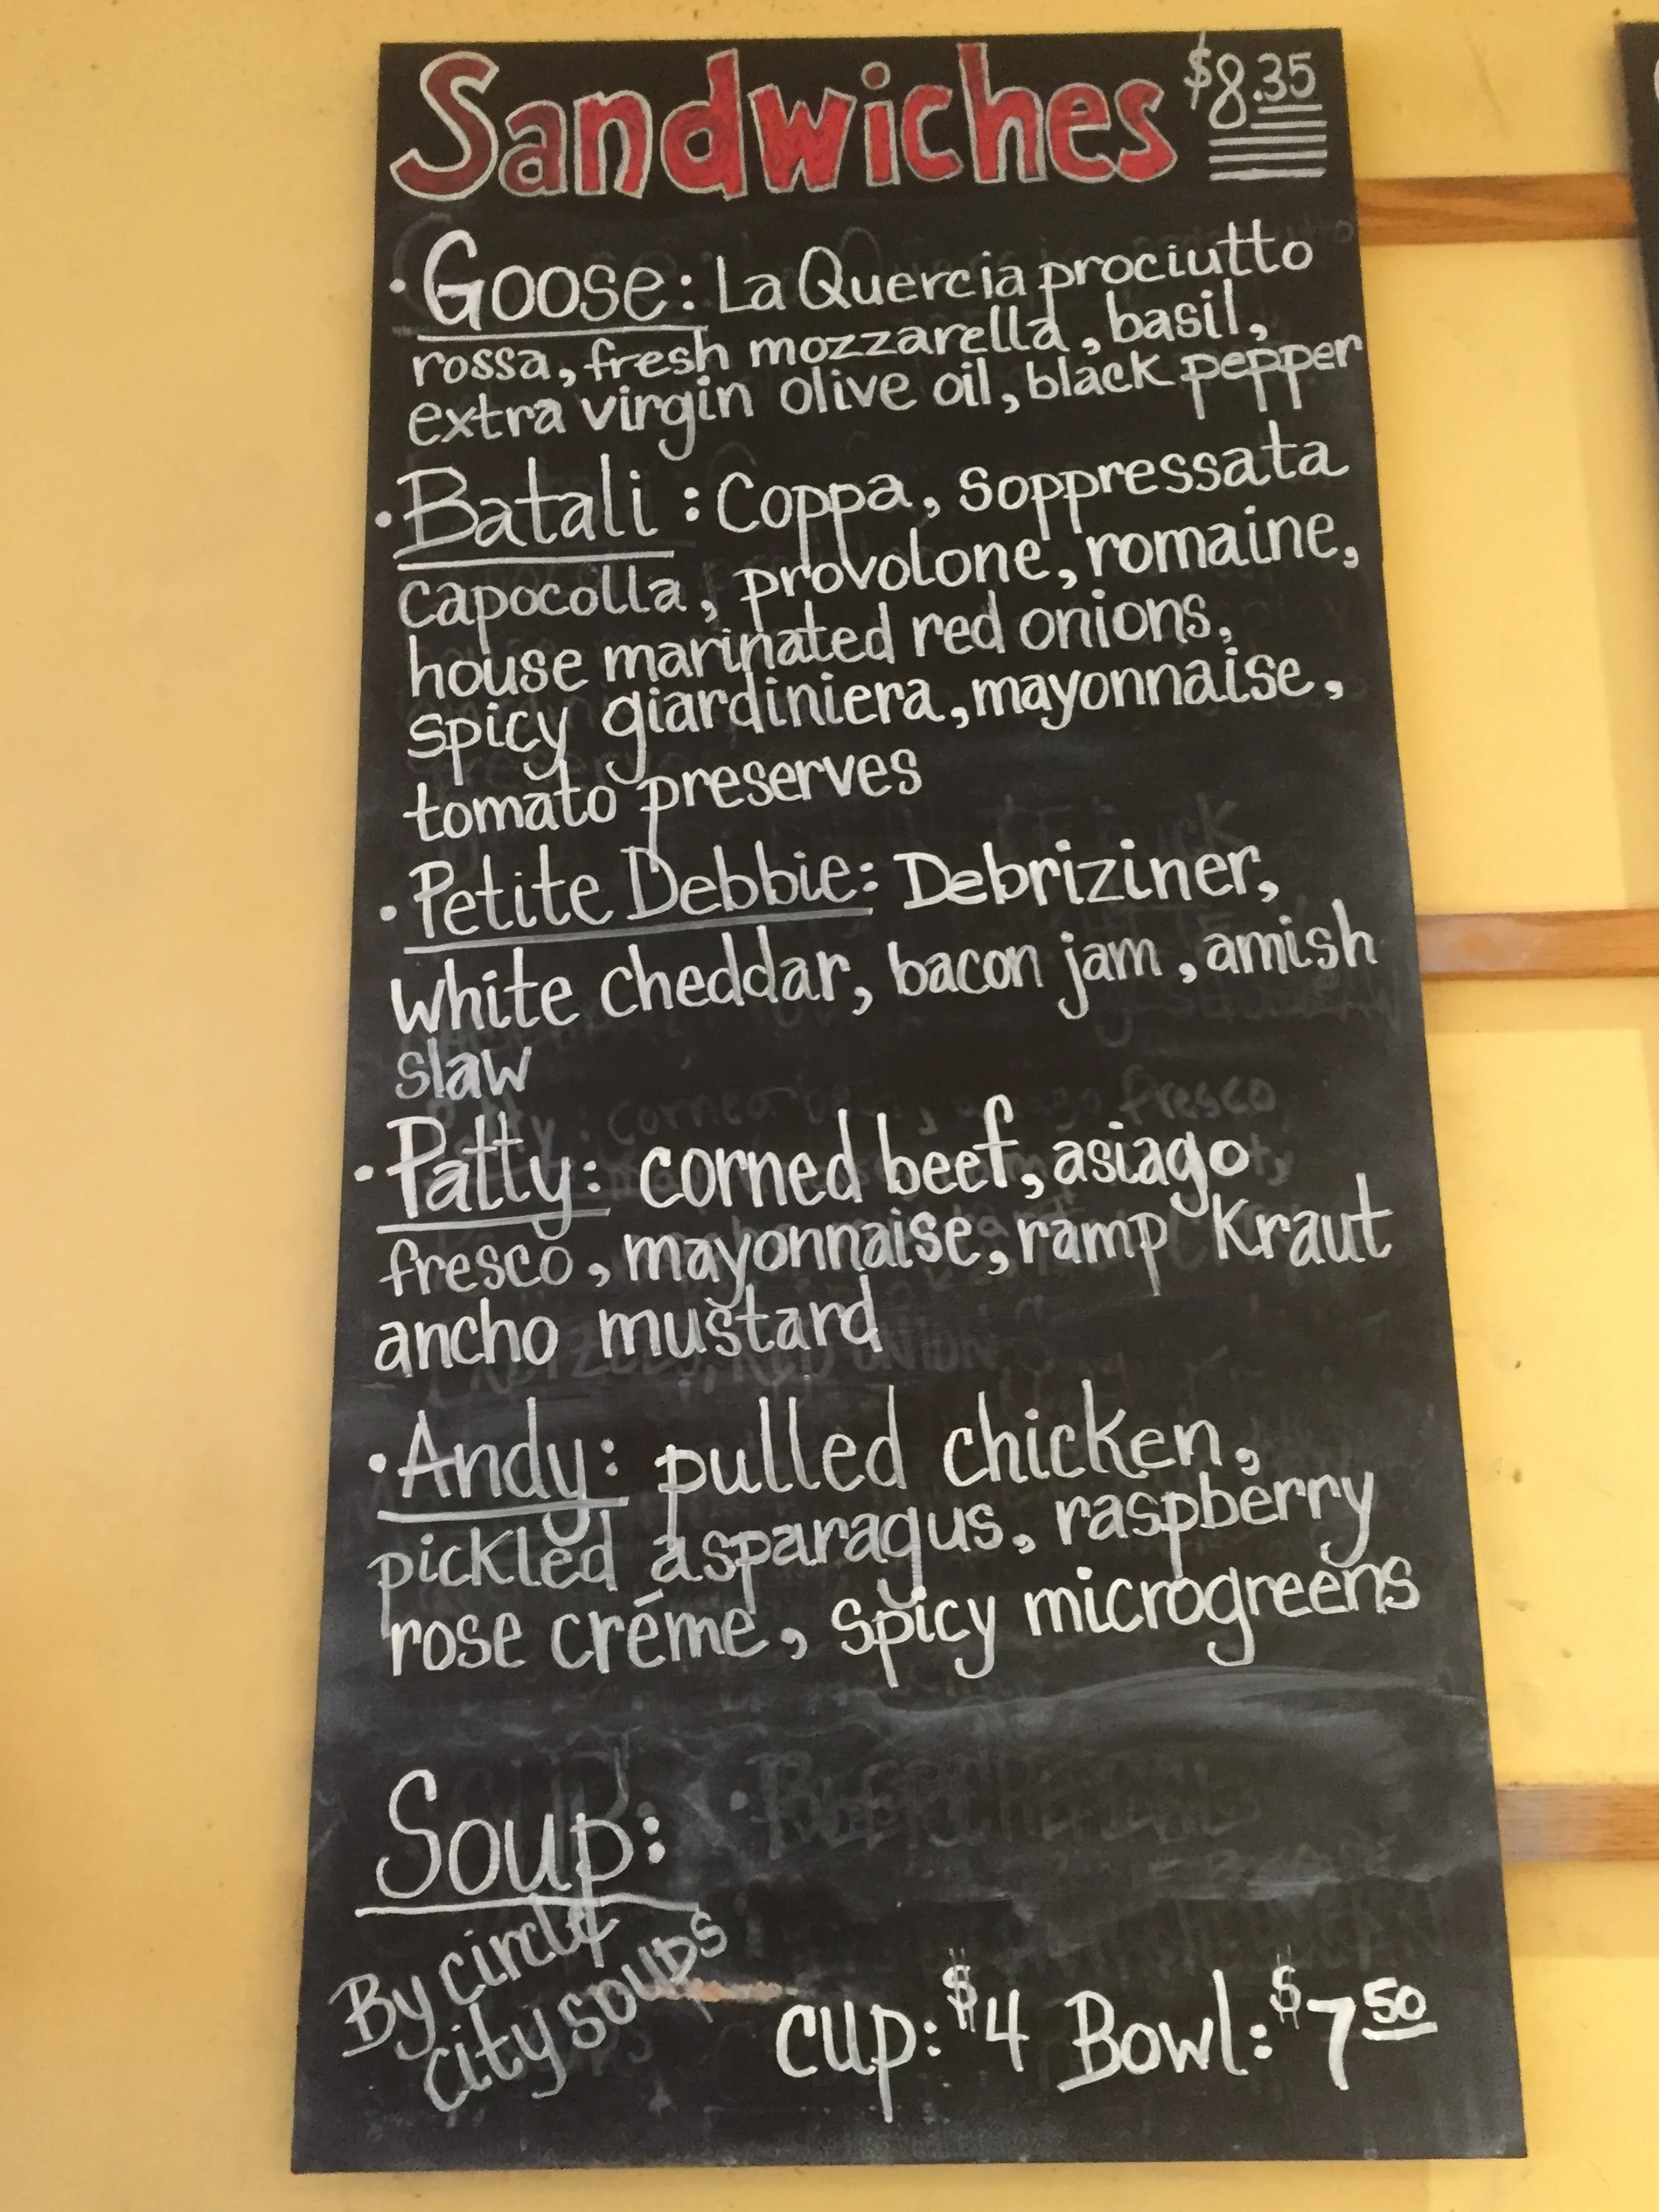 Sandwiches $8.35
·Goose: La Quercia prociutto
rossa, fresh mozzarella, basil,
extra virgin olive oil, black pepper
·Batali: Coppa, Soppressata
capocolla, provolone, romaine,
house marinated red onions,
spicy giardiniera, mayonnaise,
tomato preserves
·Petite Debbie: Debriziner,
white cheddar, bacon jam, amish
slaw
·Patty: corned beef, asiago
fresco, mayonnaise, ramp Kraut
ancho mustard
·Andy: pulled chicken,
pickled asparagus, raspberry
rose créme, spicy microgreens
Soup:
By circle
city soups
cup: $4 Bowl: $7 50